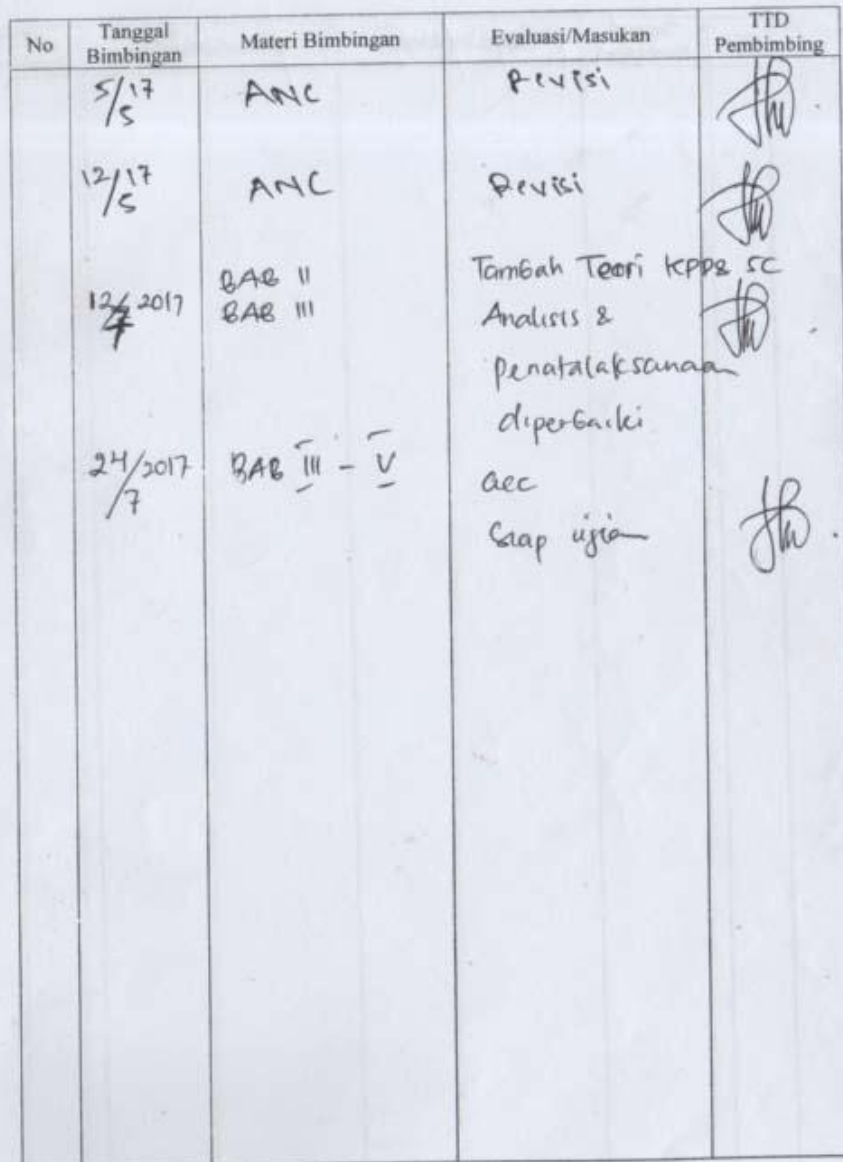 No Tanggal Bimbingan Materi Bimbingan Evaluasi/Masukan TTD Pembimbing
5/17 5 ANC Revisi
12/17 5 ANC Revisi
BAB II Tambah Teori KPP& SC
12/2017 7 BAB III Analisis &
penatalaksanaan
diperbaiki
24/2017 7 BAB III - V acc
Siap ujian